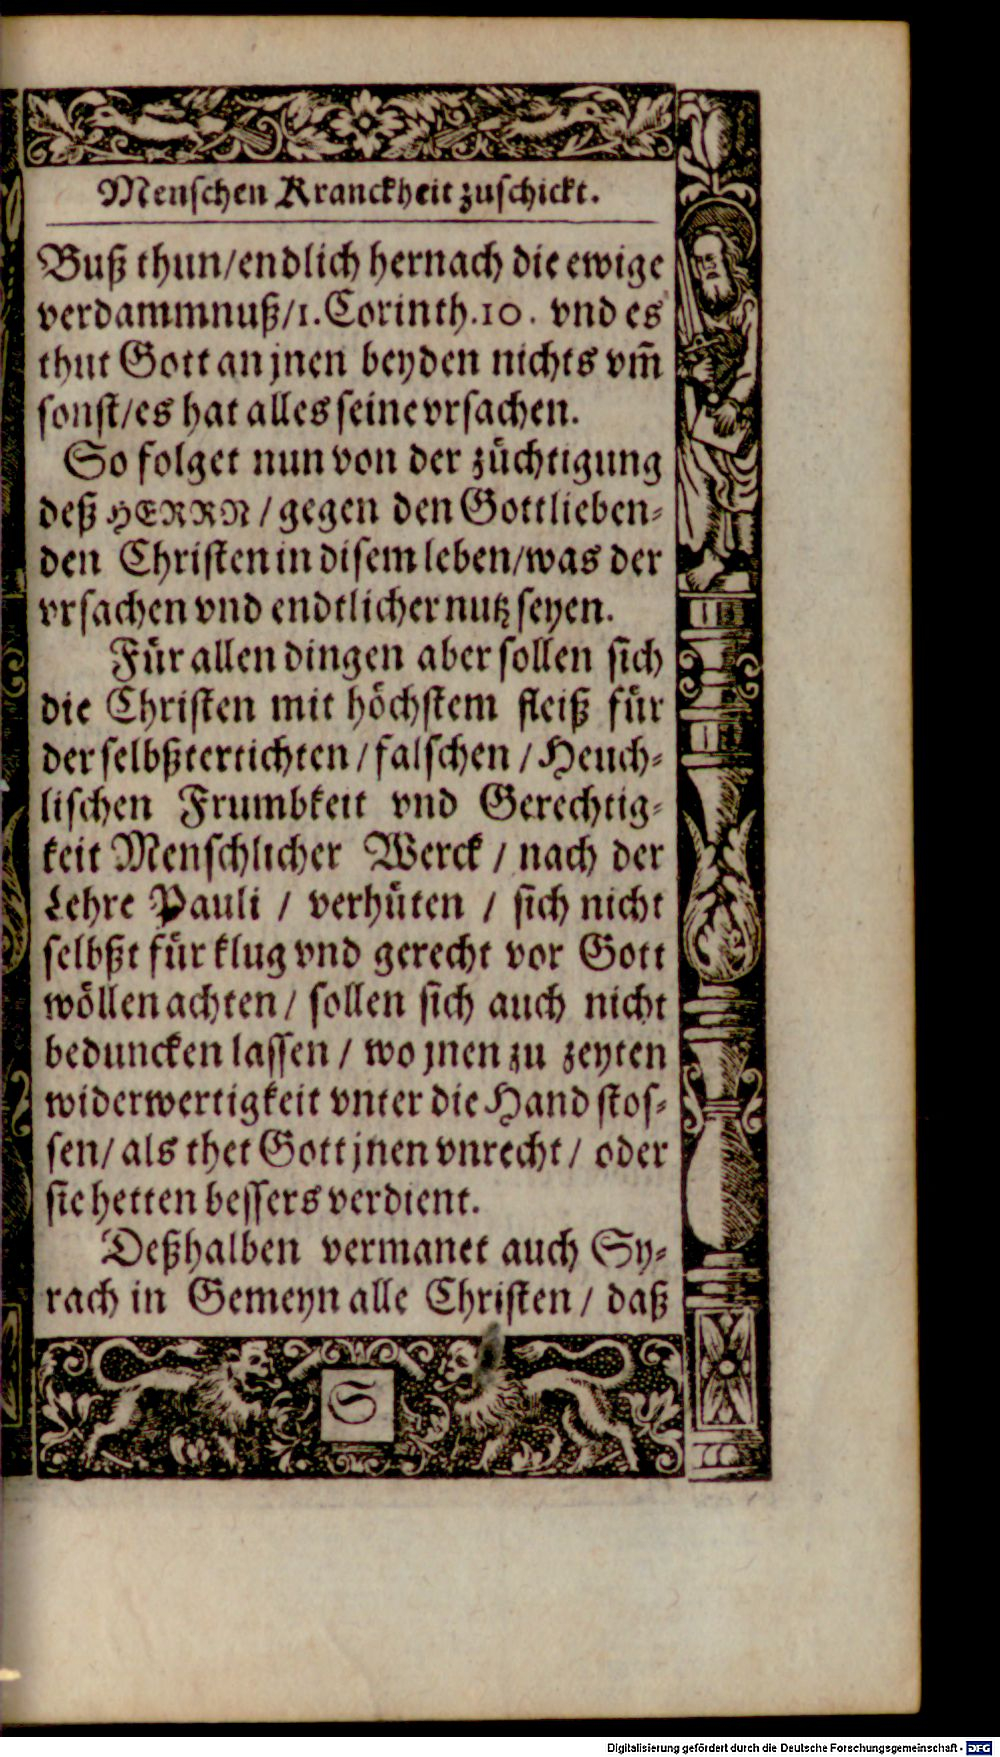 Menſchen Kranckheit zuſchickt.
Buß thun/endlich hernach die ewige
verdammnuß/1.Corinth.10. vnd es
thut Gott an jnen beyden nichts vm̃
ſonſt/es hat alles ſeine vrſachen.
So folget nun von der zuͤchtigung
deß HERRN / gegen den Gottlieben⸗
den Chriſten in diſem leben/was der
vrſachen vnd endtlicher nutz ſeyen.
Fuͤr allen dingen aber ſollen ſich
die Chriſten mit hoͤchſtem fleiß fuͤr
der ſelbßtertichten / falſchen / Heuch⸗
liſchen Frumbkeit vnd Gerechtig⸗
keit Menſchlicher Werck / nach der
Lehre Pauli / verhuͤten / ſich nicht
ſelbßt fuͤr klug vnd gerecht vor Gott
woͤllen achten / ſollen ſich auch nicht
beduncken laſſen / wo jnen zu zeyten
widerwertigkeit vnter die Hand ſtoſ⸗
ſen/ als thet Gott jnen vnrecht / oder
ſie hetten beſſers verdient.
Deßhalben vermanet auch Sy⸗
rach in Gemeyn alle Chriſten / daß
S
Digitalisierung gefördert durch die Deutsche Forschungsgemeinschaft - DFG